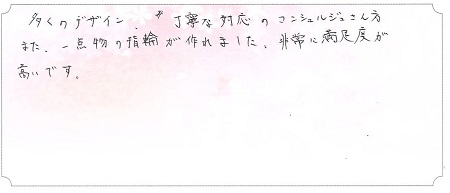 多くのデザイン、丁寧な対応のコンシェルジュさん方
また、一点物の指輪が作れました、非常に満足度が
高いです。